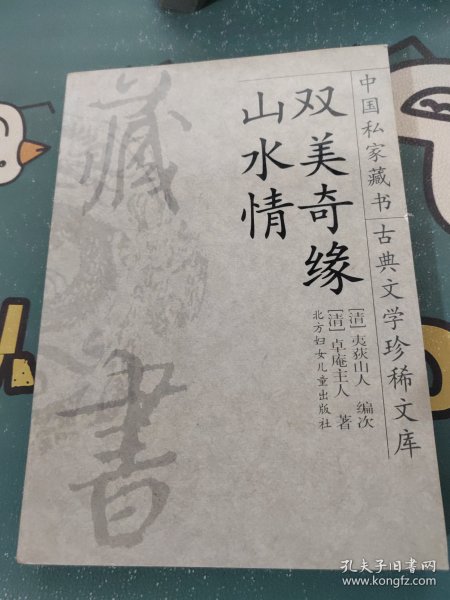 中国私家藏书 古典文学珍稀文库
双美奇缘
山水情
[清] 夷荻山人 编次
[清] 卓庵主人 著
北方妇女儿童出版社
藏
書
孔夫子旧书网
www.kongfz.com